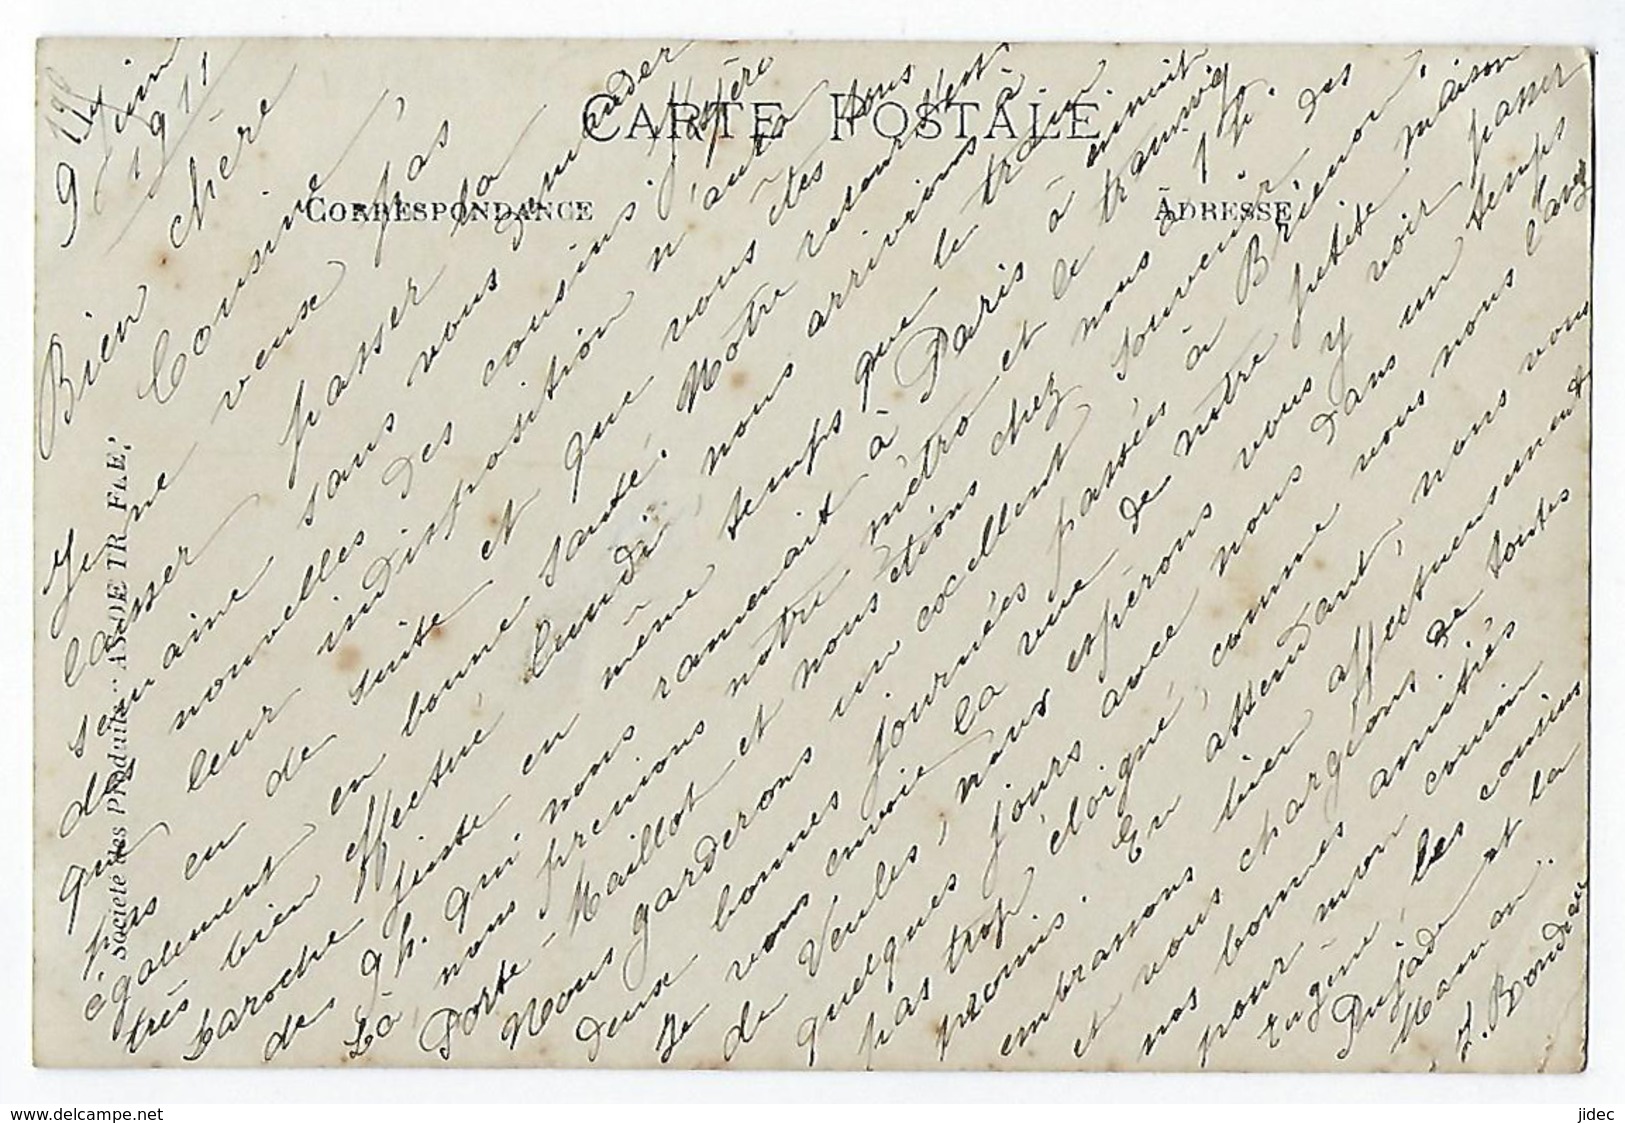 CARTE POSTALE
CORRESPONDANCE
ADRESSE
Société des Produits AS DE TREFLE
9 Juin
1911
Bien chère
Cousine,
Je ne veux pas
laisser passer la
semaine sans vous demander
des nouvelles des cousins j'espère
que leur indisposition n'aura
pas eu de suite et que vous êtes tous
également en bonne santé. Notre retour s'est
très bien effectué, lundi, nous arrivions à
Laroche juste en même temps que le train
des 9h. qui nous ramenait à Paris à minuit.
Là, nous prenions notre métro et le tramway
Porte-Maillot et nous étions chez nous à 1h.
Nous garderons un excellent souvenir des
deux bonnes journées passées à Brienon.
Je vous envoie la vue de notre petite maison
de Veules, nous espérons vous y voir passer
quelques jours avec nous dans un temps
pas trop éloigné, comme vous nous l'avez
promis. En attendant, nous vous
embrassons bien affectueusement
et vous chargeons de toutes
nos bonnes amitiés
pour mon cousin
Eugène, les cousins
Pujade et la
Maman.
J. Bondeau
www.delcampe.net
jidec